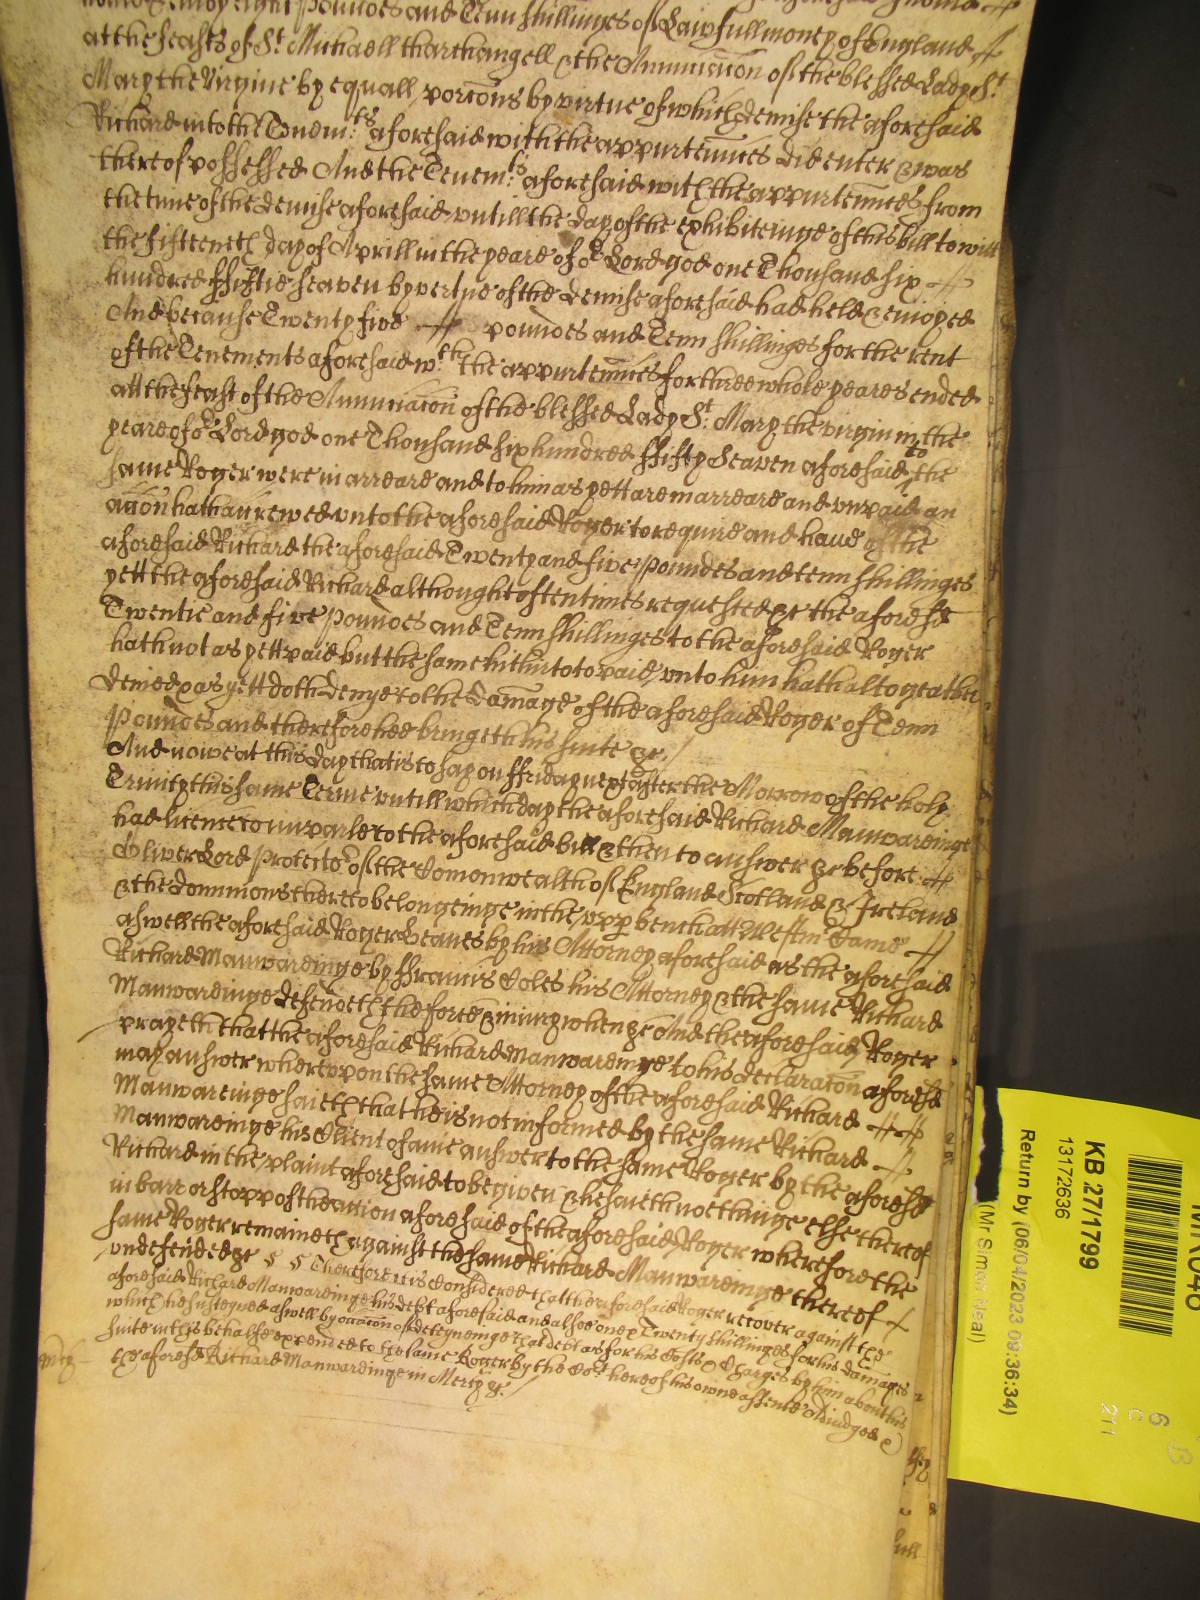 pounds and Tenn shillinges of Lawfull money of England
at the feasts of St Michaell tharchangell & the Annunciacon of the blessed Lady St
Mary the Virgine by equall porcons by virtue of which demise the aforesaid
Richard into the Tenemts aforesaid with the appurtennces did enter & was
thereof possessed And the Tenemts aforesaid with the appurtennces from
the time of the demise aforesaid untill the day of the exhibiteinge of this bill to witt
the fifteeneth day of Aprill in the yeare of or Lord god one Thousand six
hundred ffiftie seaven by vertue of the demise aforesaid had held & enioyed
And because Twenty five pounds and Tenn shillinges for the rent
of the Tenements aforesaid wth the appurtennces for three whole yeares ended
att the feast of the Annunciacon of the blessed Lady St Mary the virgin in the
yeare of or Lord god one Thousand six hundred ffifty Seaven aforesaid to the
same Roger were in arreare and to him as yett are in arreare and unpaid an
accon hath accrewed unto the aforesaid Roger to require and have of the
aforesaid Richard the aforesaid Twenty and five poundes and tenn shillinges
yett the aforesaid Richard althought oftentimes requested &c the aforesd
Twentie and five pounds and Tenn shillinges to the aforesaid Roger
hath not as yett paid but the same hitherto to paid unto him hath altogeather
denied & as yett doth denye to the damage of the aforesaid Roger of Tenn
pounds and therefore hee bringeth his suite &c
And nowe at this day that is to say on ffriday next after the Morrow of the holy
Trinity this same Terme untill which day the aforesaid Richard Manwareinge
had licence to imparle to the aforesaid bill & then to answer &c before
Oliver Lord Protector of the Comonwealth of England Scotland & Ireland
& the dominions thereto belongeinge in the upp bench att Westm Came
aswell the aforesaid Roger Leaves by his Attorney aforesaid as the aforesaid
Richard Manwareinge by ffrancis Coles his Attorney & the same Richard
Manwareinge defendeth the force & iniury when &c And the aforesaid Roger
prayeth that the aforesaid Richard Manwareinge to his declaracon aforesd
may answer whereupon the same Attorney of the aforesaid Richard
Manwareinge saieth that he is not informed by the same Richard
Manwareinge his Client of anie answer to the same Roger by the aforesd
Richard in the plaint aforesaid to be given & he saieth nothinge else thereof
in barr or stopp of the accion aforesaid of the aforesaid Roger wherefore the
same Roger remaineth against the same Richard Manwareinge thereof
undefended &c Therefore it is Considered that the aforesaid Roger recover against the
aforesaid Richard Manwareinge his debt aforesaid and alsoe Twenty shillinges for his damages
which he susteyned aswell by occacon of deteyneinge that debt as for his Costs & Charges by him about his
suite in this behalfe expended to the same Roger by the Cot hereof his owne assente Adiudged
the aforesd Richard Manwardinge in Mercy &c
Mcy
KB 27/1799
13172636
Return by (06/04/2023 09:36:34)
(Mr Simon Neal)
6 B
C
211